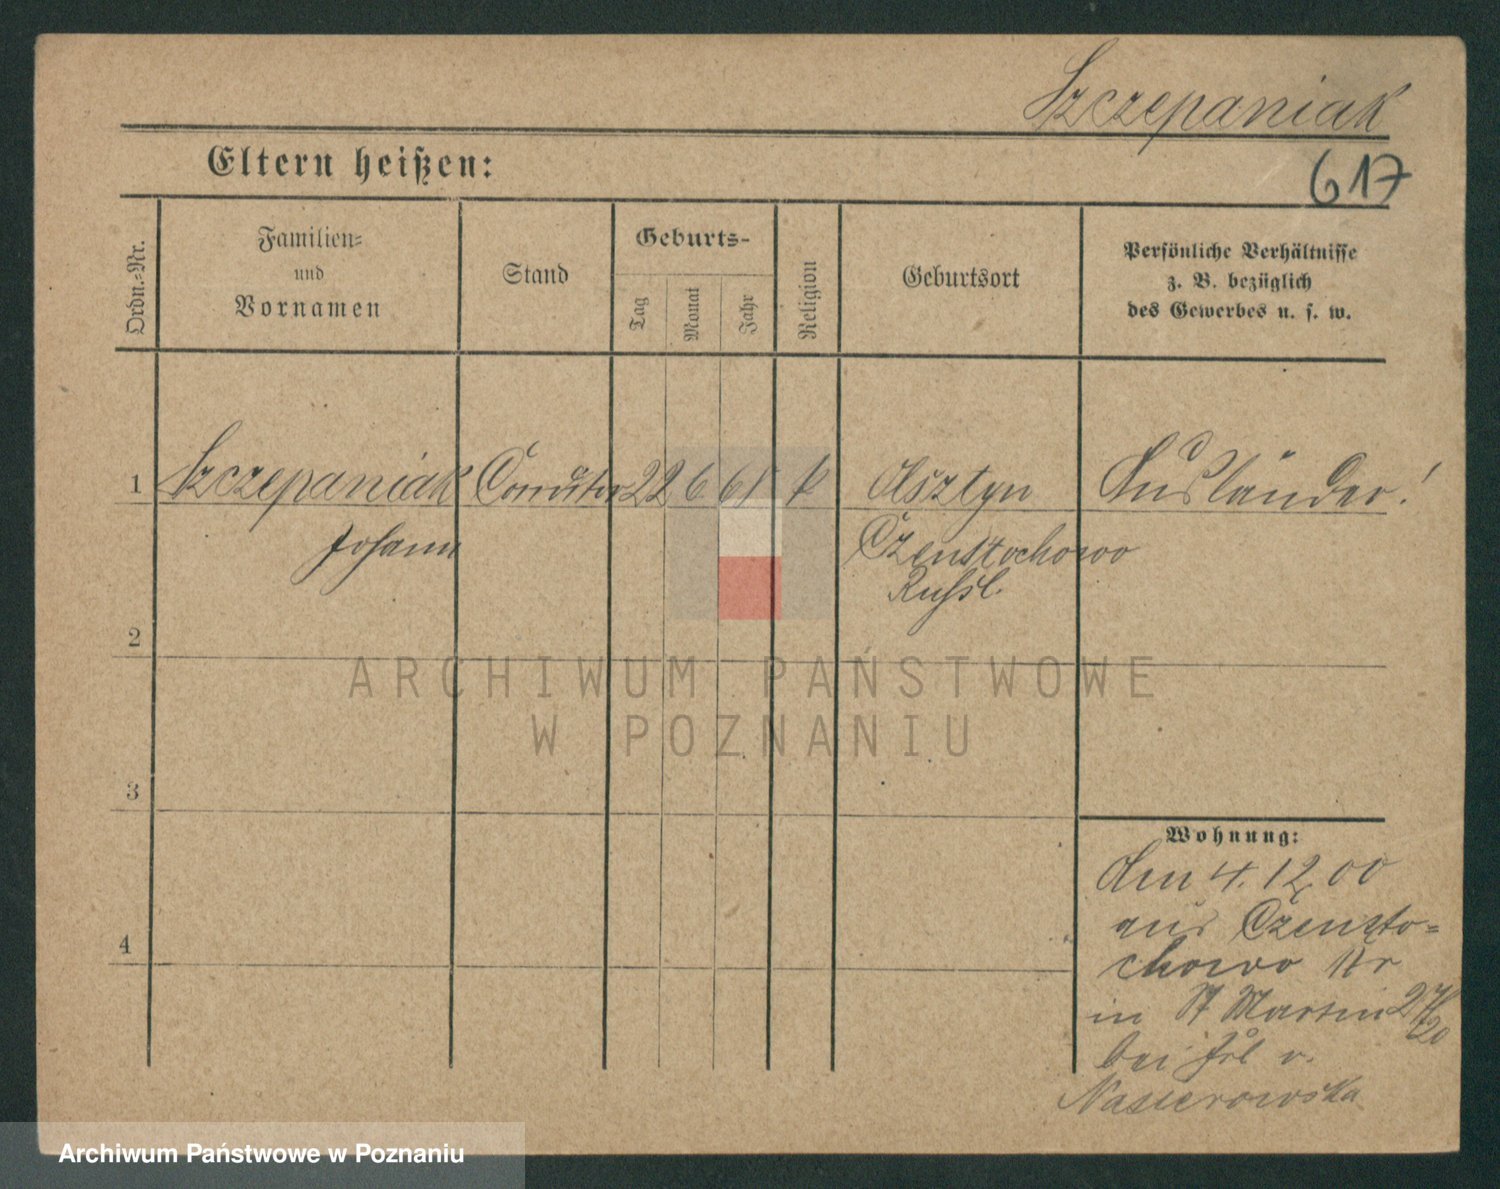 Szczepaniak
Eltern heißen:
617
Ordn.=Nr.
Familien=
und
Vornamen
Stand
Geburts-
Tag
Monat
Jahr
Religion
Geburtsort
Persönliche Verhältnisse
z. B. bezüglich
des Gewerbes u. s. w.
1 Szczepaniak 22 6 61 k Olsztyn Ausländer!
Johann Czenstochowo
Russl.
2
3
4
ARCHIWUM PAŃSTWOWE
W POZNANIU
Wohnung:
den 4. 12. 00
aus Czensto=
chowo
in St Martin 27/20
bei Frl v.
Nasierowska
Archiwum Państwowe w Poznaniu